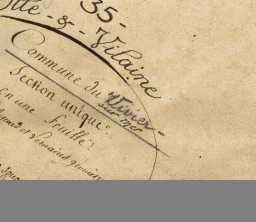 35-
Ille-&-Vilaine
Commune du Vivier-
sur mer
Section unique
En une feuille